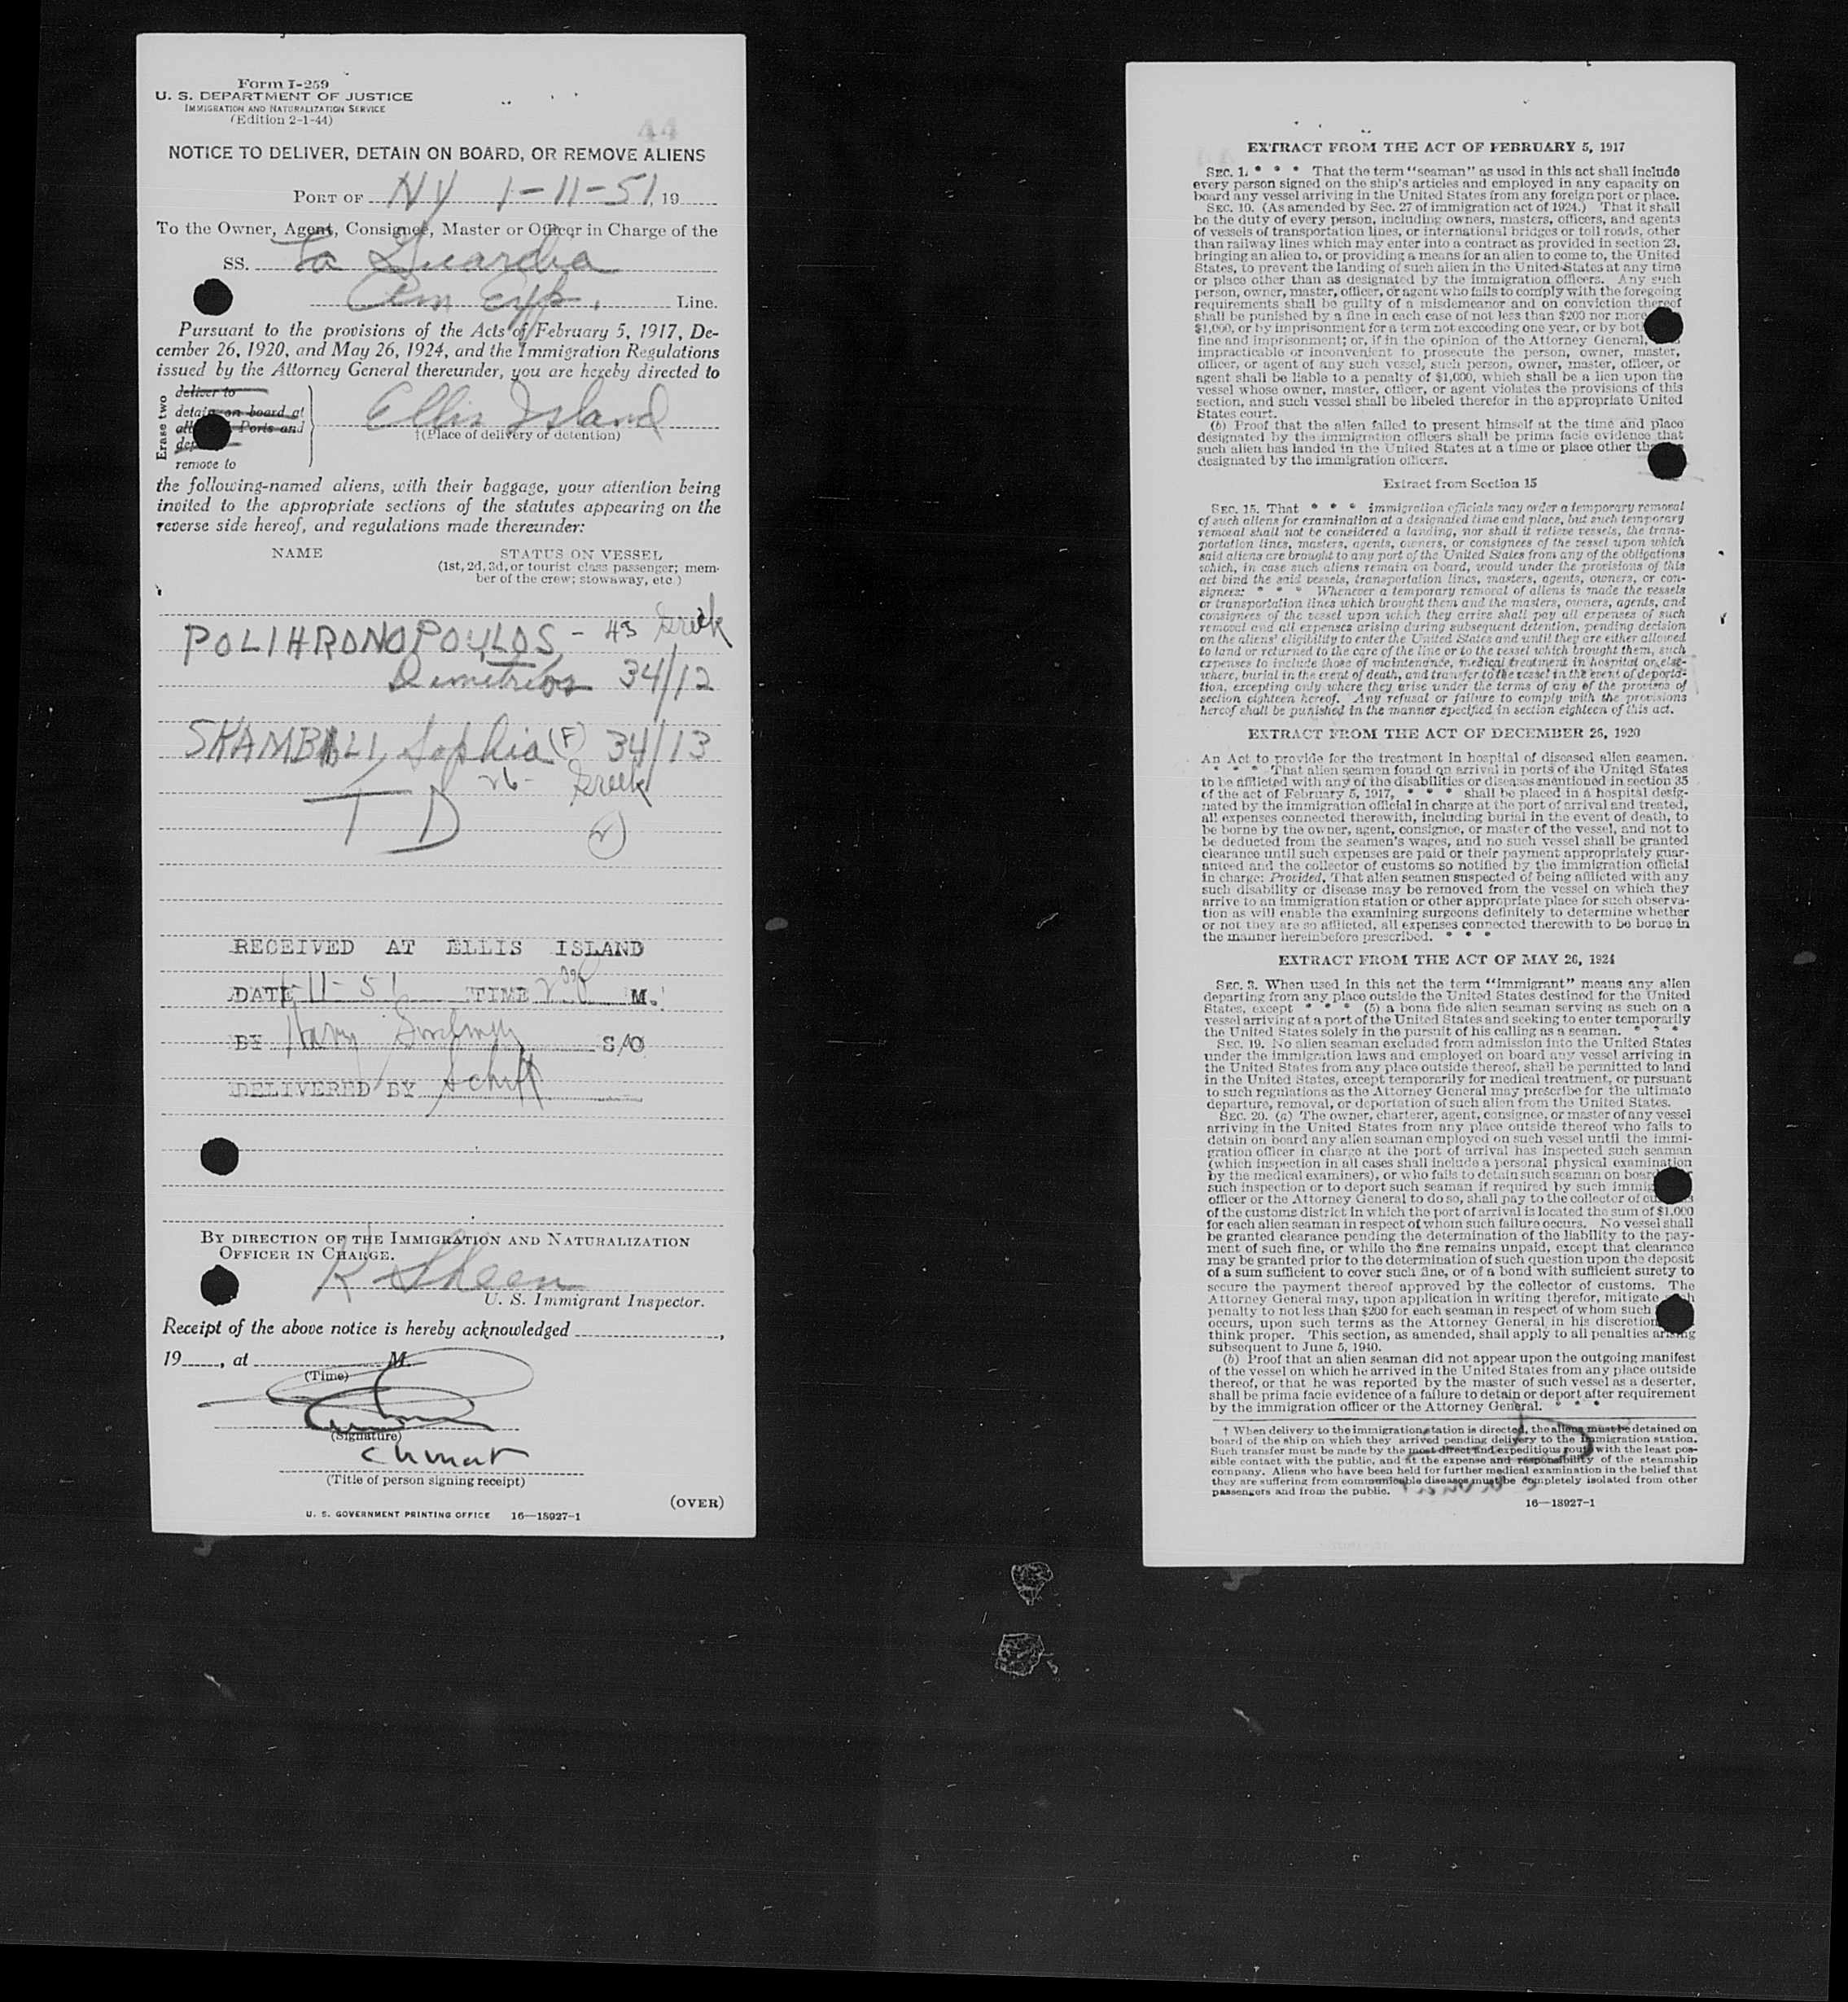 Form I-259
U. S. DEPARTMENT OF JUSTICE
IMMIGRATION AND NATURALIZATION SERVICE
(Edition 2-1-44)
44
NOTICE TO DELIVER, DETAIN ON BOARD, OR REMOVE ALIENS
PORT OF NY 1-11-51, 19
To the Owner, Agent, Consignee, Master or Officer in Charge of the
SS. La Guardia
Am Exp. Line.
Pursuant to the provisions of the Acts of February 5, 1917, De-
cember 26, 1920, and May 26, 1924, and the Immigration Regulations
issued by the Attorney General thereunder, you are hereby directed to
Erase two
deliver to
detain on board at
Ports and
remove to
Ellis Island
†(Place of delivery or detention)
the following-named aliens, with their baggage, your attention being
invited to the appropriate sections of the statutes appearing on the
reverse side hereof, and regulations made thereunder:
NAME STATUS ON VESSEL
(1st, 2d, 3d, or tourist class passenger; mem-
ber of the crew; stowaway, etc.)
POLIHRONOPOULOS, - 43 Greek
Demitrios 34/12
SKAMBILI, Sophia (F) 34/13
26 - Greek
T D
RECEIVED AT ELLIS ISLAND
DATE 1-11-51 TIME M.
BY Harry S/O
DELIVERED BY Schiff
BY DIRECTION OF THE IMMIGRATION AND NATURALIZATION
OFFICER IN CHARGE.
R Sheen
U. S. Immigrant Inspector.
Receipt of the above notice is hereby acknowledged ,
19 , at M.
(Time)
(Signature)
(Title of person signing receipt)
(OVER)
U. S. GOVERNMENT PRINTING OFFICE 16—18927-1
EXTRACT FROM THE ACT OF FEBRUARY 5, 1917
SEC. 1. * * * That the term "seaman" as used in this act shall include
every person signed on the ship's articles and employed in any capacity on
board any vessel arriving in the United States from any foreign port or place.
SEC. 10. (As amended by Sec. 27 of immigration act of 1924.) That it shall
be the duty of every person, including owners, masters, officers, and agents
of vessels of transportation lines, or international bridges or toll roads, other
than railway lines which may enter into a contract as provided in section 23,
bringing an alien to, or providing a means for an alien to come to, the United
States, to prevent the landing of such alien in the United States at any time
or place other than as designated by the immigration officers. Any such
person, owner, master, officer, or agent who fails to comply with the foregoing
requirements shall be guilty of a misdemeanor and on conviction thereof
shall be punished by a fine in each case of not less than $200 nor more
$1,000, or by imprisonment for a term not exceeding one year, or by both
fine and imprisonment; or, if in the opinion of the Attorney General,
impracticable or inconvenient to prosecute the person, owner, master,
officer, or agent of any such vessel, such person, owner, master, officer, or
agent shall be liable to a penalty of $1,000, which shall be a lien upon the
vessel whose owner, master, officer, or agent violates the provisions of this
section, and such vessel shall be libeled therefor in the appropriate United
States court.
(b) Proof that the alien failed to present himself at the time and place
designated by the immigration officers shall be prima facie evidence that
such alien has landed in the United States at a time or place other than as
designated by the immigration officers.
Extract from Section 15
SEC. 15. That * * * immigration officials may order a temporary removal
of such aliens for examination at a designated time and place, but such temporary
removal shall not be considered a landing, nor shall it relieve vessels, the trans-
portation lines, masters, agents, owners, or consignees of the vessel upon which
said aliens are brought to any port of the United States from any of the obligations
which, in case such aliens remain on board, would under the provisions of this
act bind the said vessels, transportation lines, masters, agents, owners, or con-
signees: * * * Whenever a temporary removal of aliens is made the vessels
or transportation lines which brought them and the masters, owners, agents, and
consignees of the vessel upon which they arrive shall pay all expenses of such
removal and all expenses arising during subsequent detention, pending decision
on the aliens' eligibility to enter the United States and until they are either allowed
to land or returned to the care of the line or to the vessel which brought them, such
expenses to include those of maintenance, medical treatment in hospital or else-
where, burial in the event of death, and transfer to the vessel in the event of deporta-
tion, excepting only where they arise under the terms of any of the provisos of
section eighteen hereof. Any refusal or failure to comply with the provisions
hereof shall be punished in the manner specified in section eighteen of this act.
EXTRACT FROM THE ACT OF DECEMBER 26, 1920
An Act to provide for the treatment in hospital of diseased alien seamen.
* * * That alien seamen found on arrival in ports of the United States
to be afflicted with any of the disabilities or diseases mentioned in section 35
of the act of February 5, 1917, * * * shall be placed in a hospital desig-
nated by the immigration official in charge at the port of arrival and treated,
all expenses connected therewith, including burial in the event of death, to
be borne by the owner, agent, consignee, or master of the vessel, and not to
be deducted from the seamen's wages, and no such vessel shall be granted
clearance until such expenses are paid or their payment appropriately guar-
anteed and the collector of customs so notified by the immigration official
in charge: Provided, That alien seamen suspected of being afflicted with any
such disability or disease may be removed from the vessel on which they
arrive to an immigration station or other appropriate place for such observa-
tion as will enable the examining surgeons definitely to determine whether
or not they are so afflicted, all expenses connected therewith to be borne in
the manner hereinbefore prescribed. * * *
EXTRACT FROM THE ACT OF MAY 26, 1924
SEC. 3. When used in this act the term "immigrant" means any alien
departing from any place outside the United States destined for the United
States, except * * * (5) a bona fide alien seaman serving as such on a
vessel arriving at a port of the United States and seeking to enter temporarily
the United States solely in the pursuit of his calling as a seaman. * * *
SEC. 19. No alien seaman excluded from admission into the United States
under the immigration laws and employed on board any vessel arriving in
the United States from any place outside thereof, shall be permitted to land
in the United States, except temporarily for medical treatment, or pursuant
to such regulations as the Attorney General may prescribe for the ultimate
departure, removal, or deportation of such alien from the United States.
SEC. 20. (a) The owner, charterer, agent, consignee, or master of any vessel
arriving in the United States from any place outside thereof who fails to
detain on board any alien seaman employed on such vessel until the immi-
gration officer in charge at the port of arrival has inspected such seaman
(which inspection in all cases shall include a personal physical examination
by the medical examiners), or who fails to detain such seaman on board
such inspection or to deport such seaman if required by such immig
officer or the Attorney General to do so, shall pay to the collector of cu
of the customs district in which the port of arrival is located the sum of $1,000
for each alien seaman in respect of whom such failure occurs. No vessel shall
be granted clearance pending the determination of the liability to the pay-
ment of such fine, or while the fine remains unpaid, except that clearance
may be granted prior to the determination of such question upon the deposit
of a sum sufficient to cover such fine, or of a bond with sufficient surety to
secure the payment thereof approved by the collector of customs. The
Attorney General may, upon application in writing therefor, mitigate such
penalty to not less than $200 for each seaman in respect of whom such
occurs, upon such terms as the Attorney General in his discretion
think proper. This section, as amended, shall apply to all penalties arising
subsequent to June 5, 1940.
(b) Proof that an alien seaman did not appear upon the outgoing manifest
of the vessel on which he arrived in the United States from any place outside
thereof, or that he was reported by the master of such vessel as a deserter,
shall be prima facie evidence of a failure to detain or deport after requirement
by the immigration officer or the Attorney General. * * *
† When delivery to the immigration station is directed, the aliens must be detained on
board of the ship on which they arrived pending delivery to the immigration station.
Such transfer must be made by the most direct and expeditious route with the least pos-
sible contact with the public, and at the expense and responsibility of the steamship
company. Aliens who have been held for further medical examination in the belief that
they are suffering from communicable diseases must be completely isolated from other
passengers and from the public.
16—18927-1